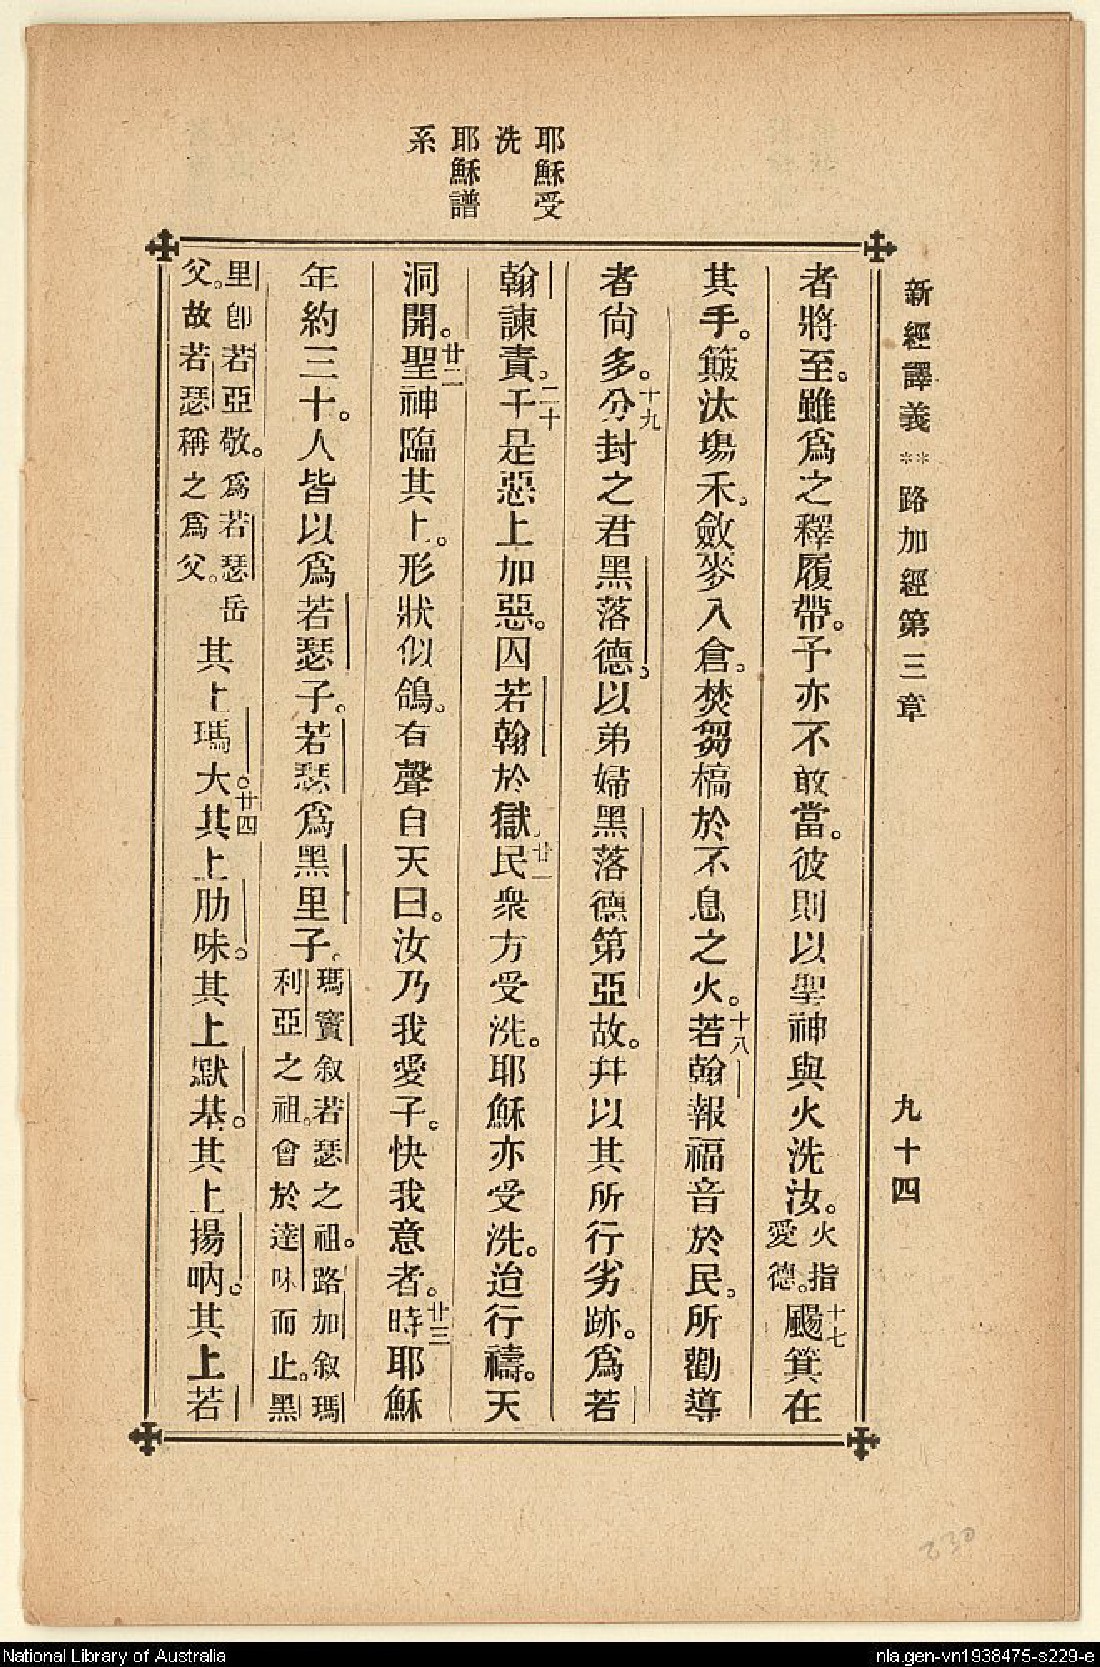 新經譯義⁂路加經第三章　九十四
耶穌受
洗
耶穌譜
系
者將至。雖爲之釋履帶。予亦不敢當。彼則以聖神與火洗汝。火指愛德。十七颺箕在
其手。簸汰塲禾。斂麥入倉。焚芻槁於不息之火。十八若翰報福音於民。所勸導
者尙多。十九分封之君黑落德。以弟婦黑落德第亞故。幷以其所行劣跡。爲若
翰諫責。二十于是惡上加惡。囚若翰於獄。廿一民衆方受洗。耶穌亦受洗。迨行禱。天
洞開。廿二聖神臨其上。形狀似鴿。有聲自天曰。汝乃我愛子。快我意者。廿三時耶穌
年約三十。人皆以爲若瑟子。若瑟爲黑里子。瑪竇叙若瑟之祖。路加叙瑪利亞之祖。會於達味而止。黑
里卽若亞敬。爲若瑟岳父。故若瑟稱之爲父。其上瑪大。廿四其上肋味。其上默基。其上揚吶。其上若
230
National Library of Australia
nla.gen-vn1938475-s229-e